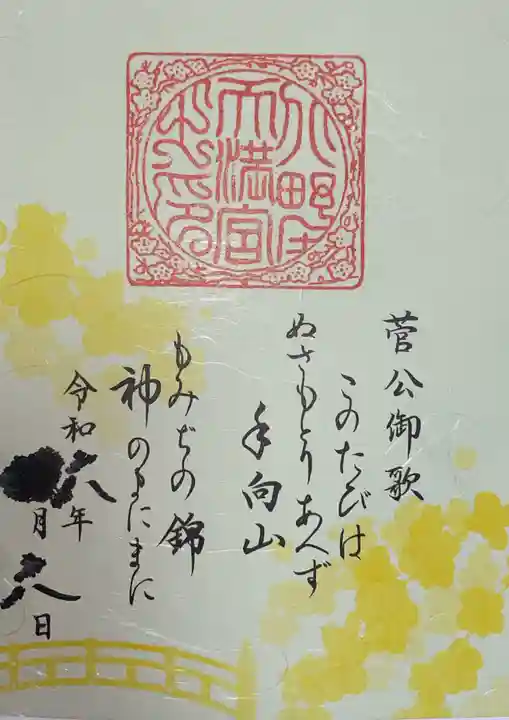 天満宮
菅公御歌
このたびは
ぬさもとりあへず
手向山
もみぢの錦
神のまにまに
令和八年
月
八日